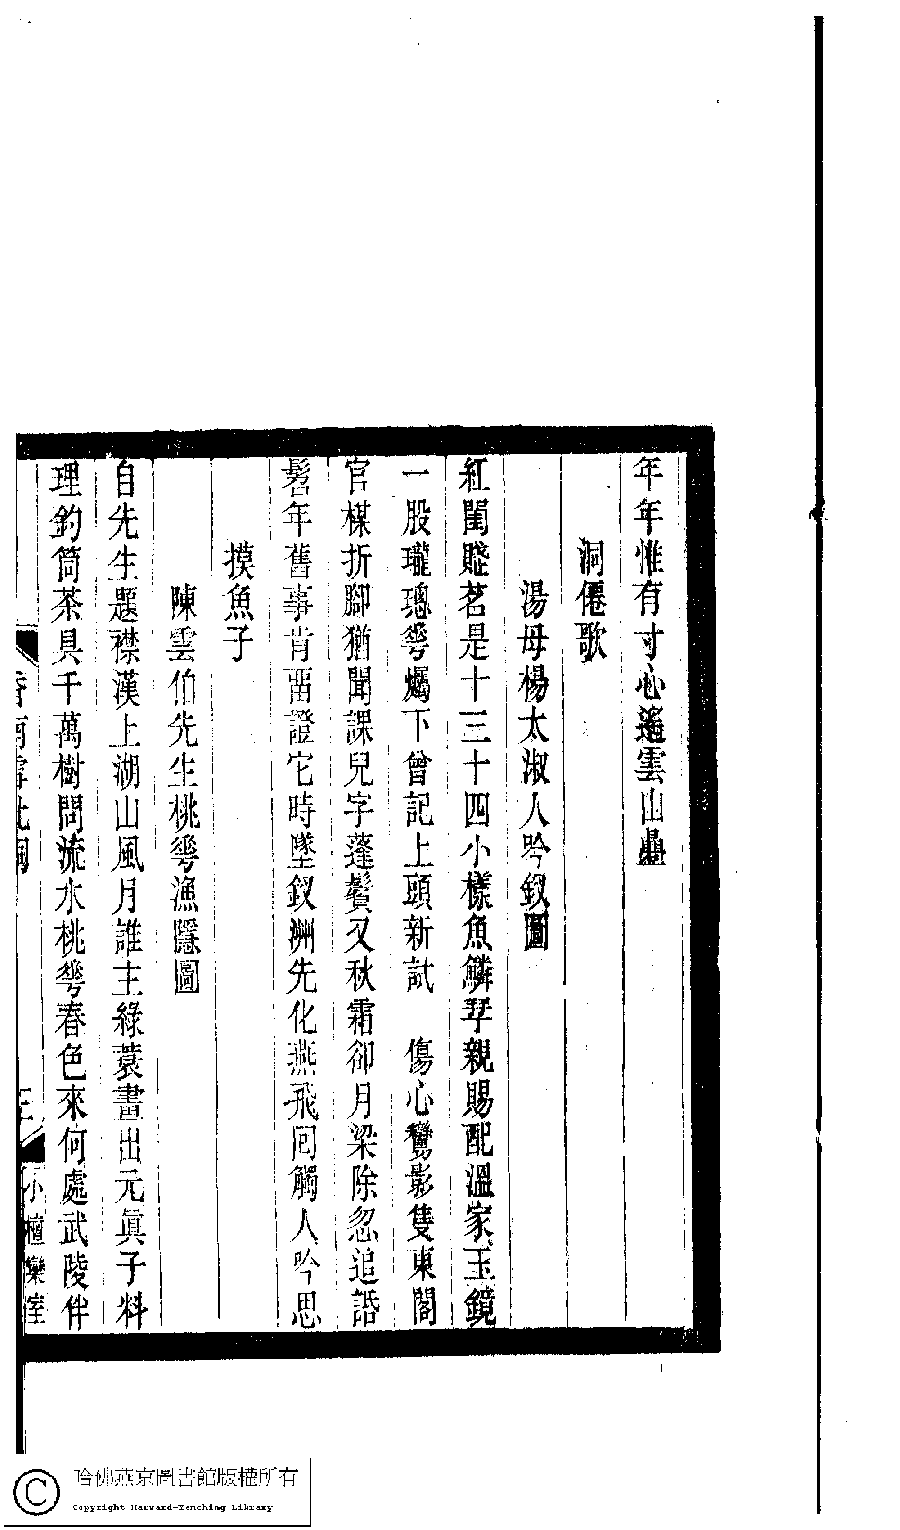 年年惟有寸心遙雲山疊
洞僊歌
湯母楊太淑人吟釵圖
紅閨賤茗是十三十四小樣魚鱗琴親賜配溫家玉鏡
一股瓏璁蕐爥下曾記上頭新試　傷心鸞影隻東閣
官楳折腳猶聞課兒字蓬鬢又秋霜卻月梁除忽追話
髫年舊事肯畱證它時墜釵洲先化燕飛囘觸人吟思
摸魚子
陳雲伯先生桃蕐漁隱圖
自先生題襟漢上湖山風月誰主綠蓑畫出元眞子料
理釣筒茶具千萬樹問流水桃蕐春色來何處武陵伴
香南雪北詞
三
小檀欒室
哈佛燕京圖書館版權所有
Copyright Harvard-Yenching Library